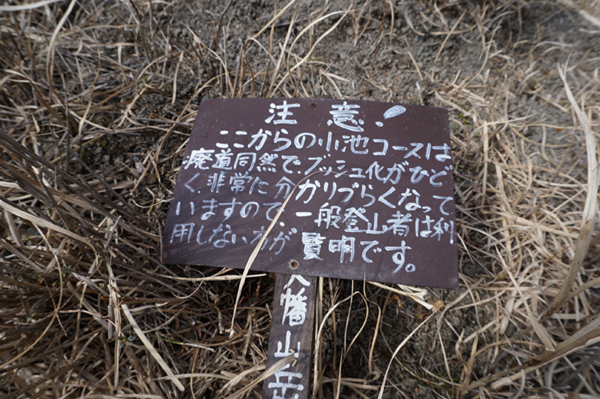 注意!
ここからの小池コースは
廃道同然でブッシュ化がひど
く、非常に分かりづらくなって
いますので、一般登山者は利
用しない方が賢明です。
八幡山岳